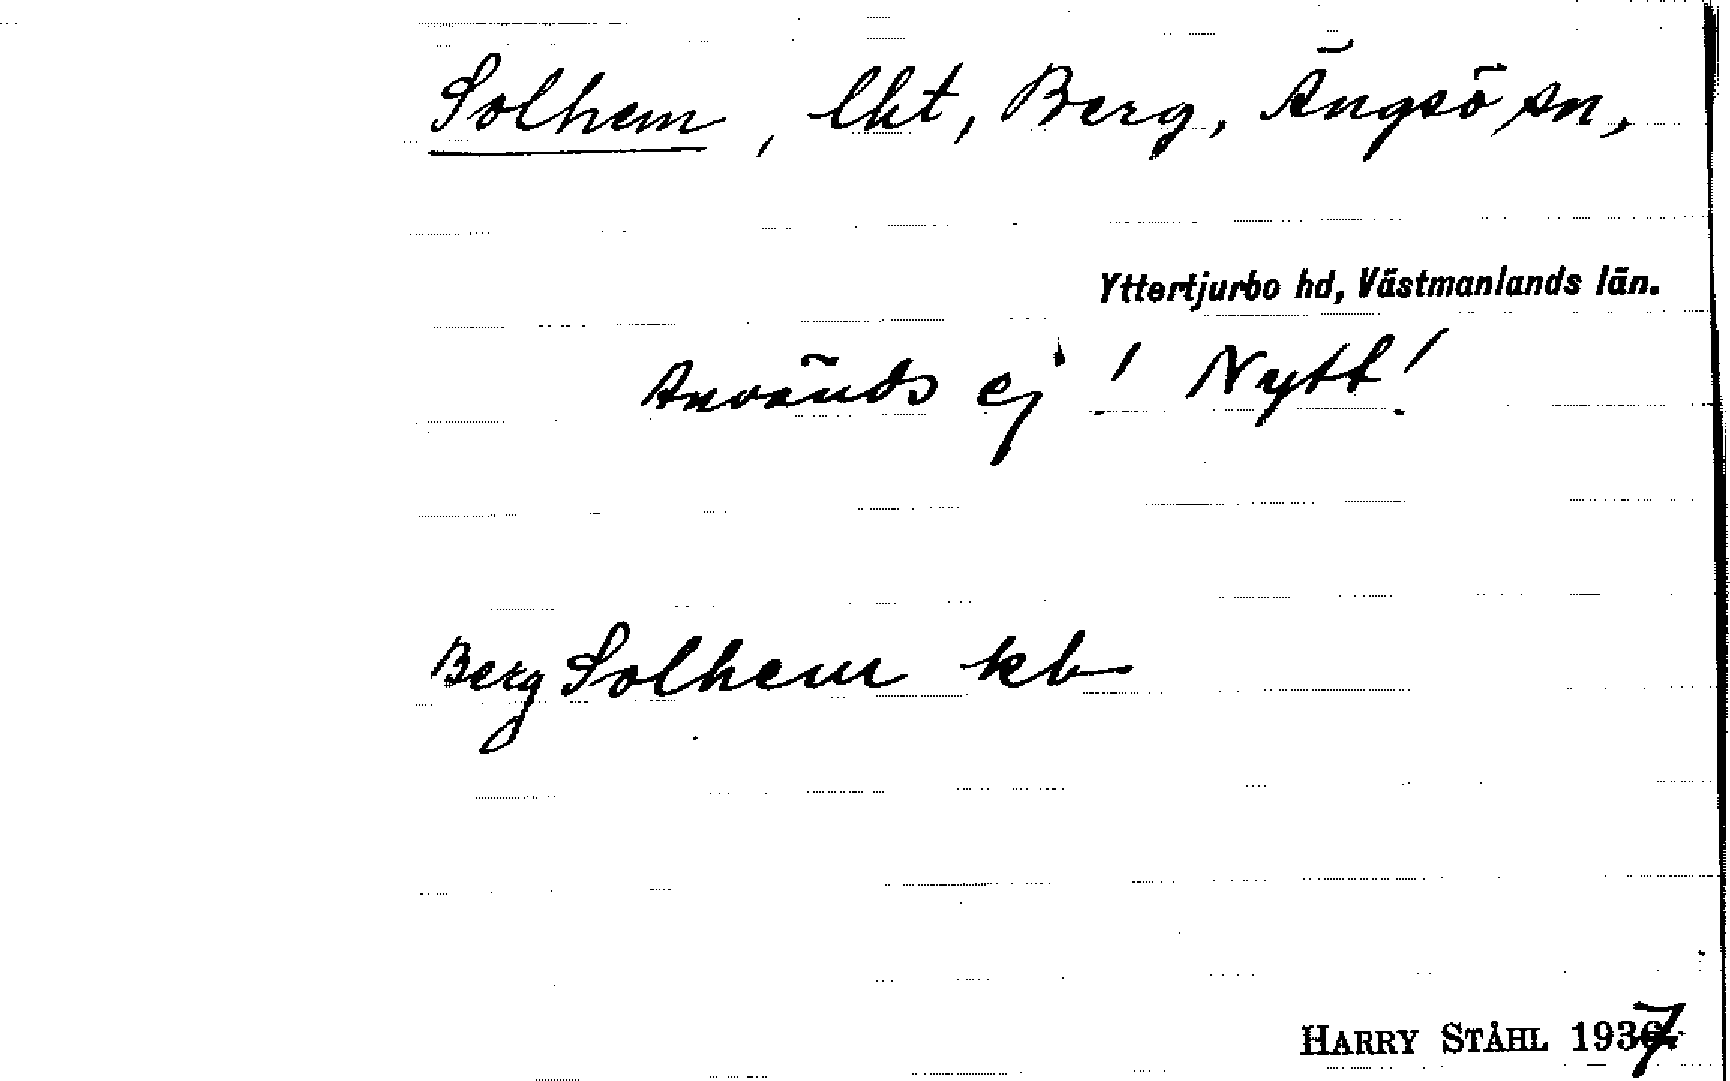 Solhem, lht, Berg, Ängsö sn,
Yttertjurbo hd, Västmanlands län.
Används ej! Nytt!
Berg Solhem kb
HARRY STÅHL 1937